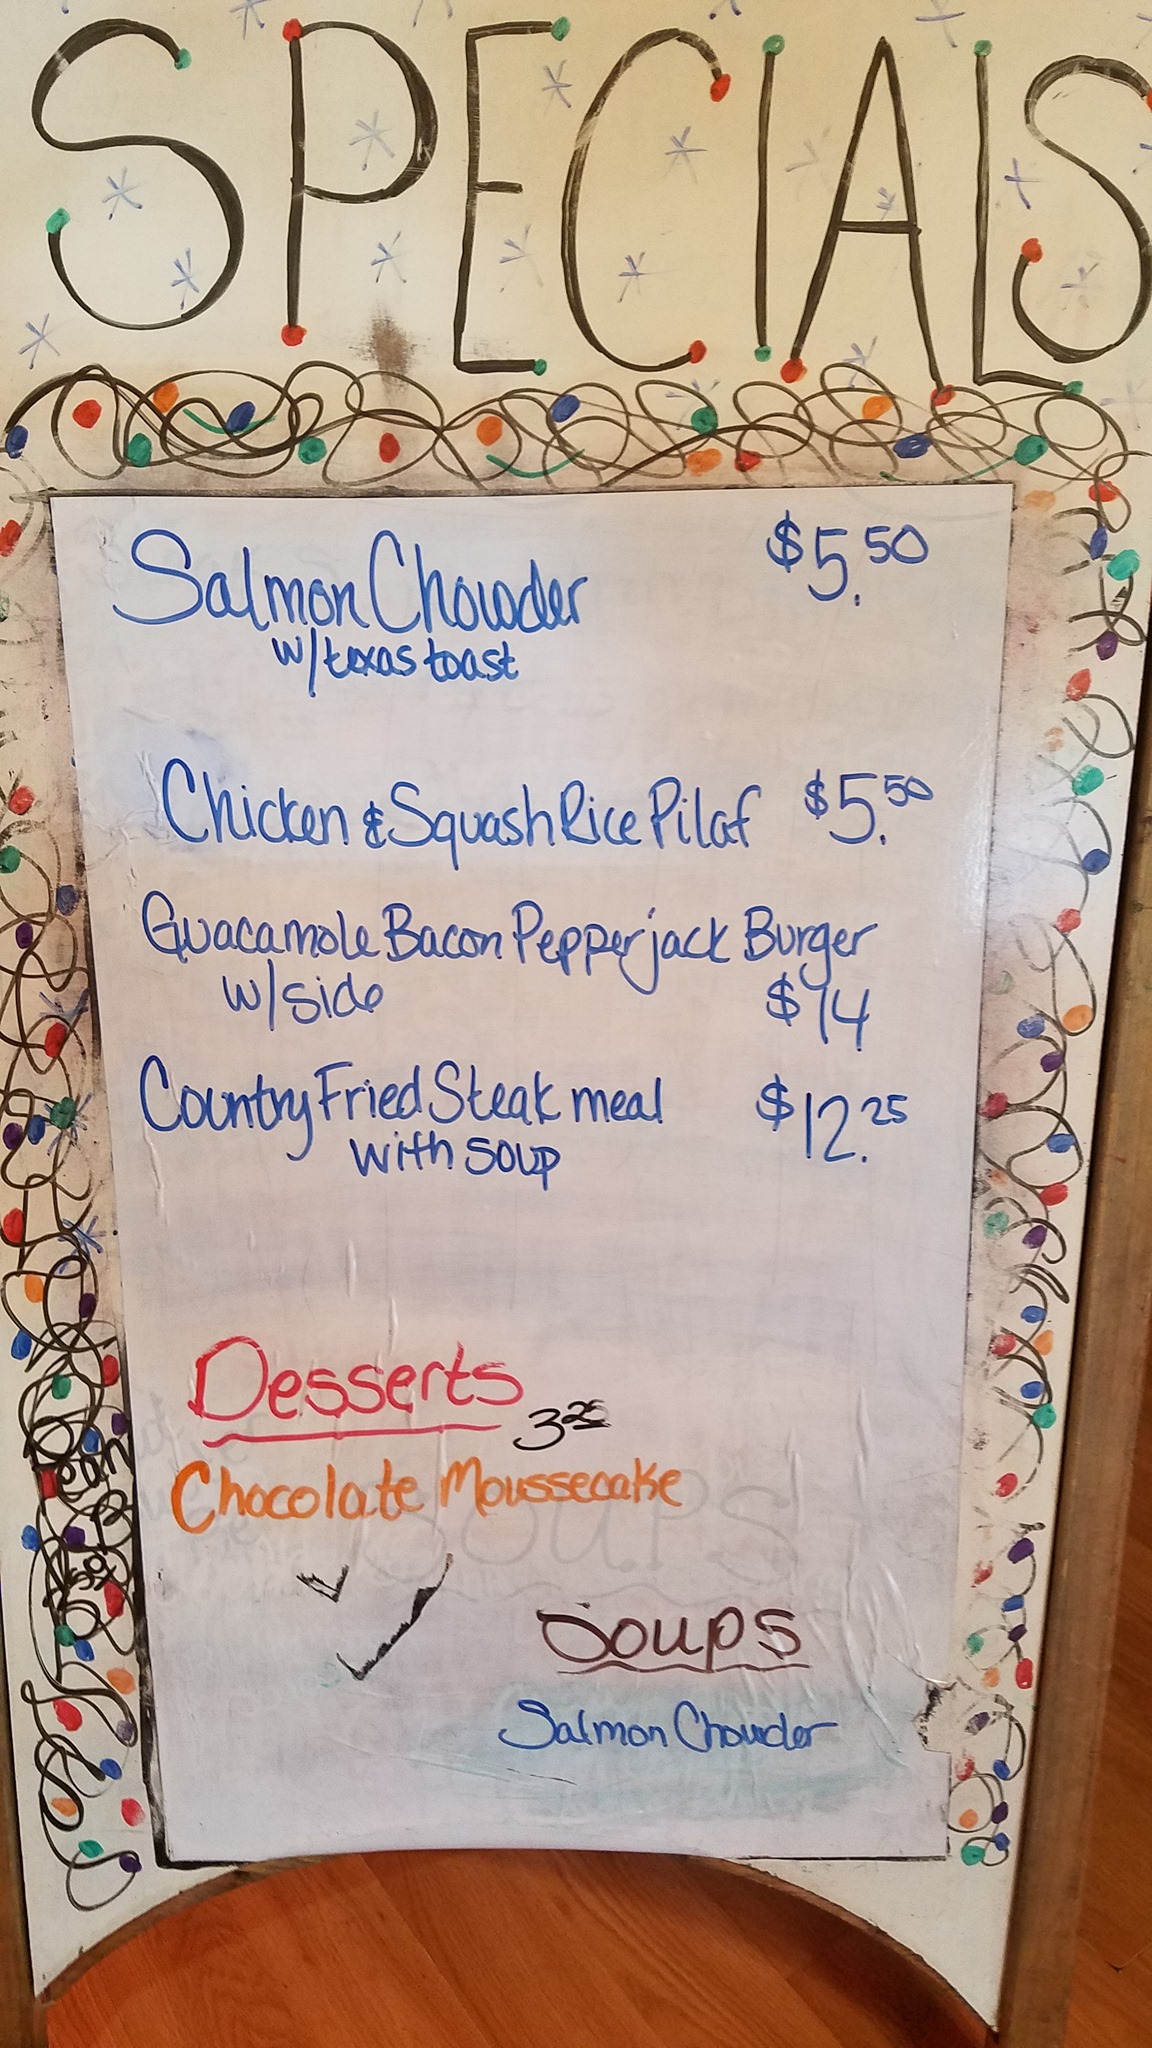 SPECIALS
Salmon Chowder $5.50
w/texas toast
Chicken & Squash Rice Pilaf $5.50
Guacamole Bacon Pepperjack Burger
w/side $14
Country Fried Steak meal $12.25
with soup
Desserts
3.25
Chocolate Moussecake
Soups
Salmon Chowder